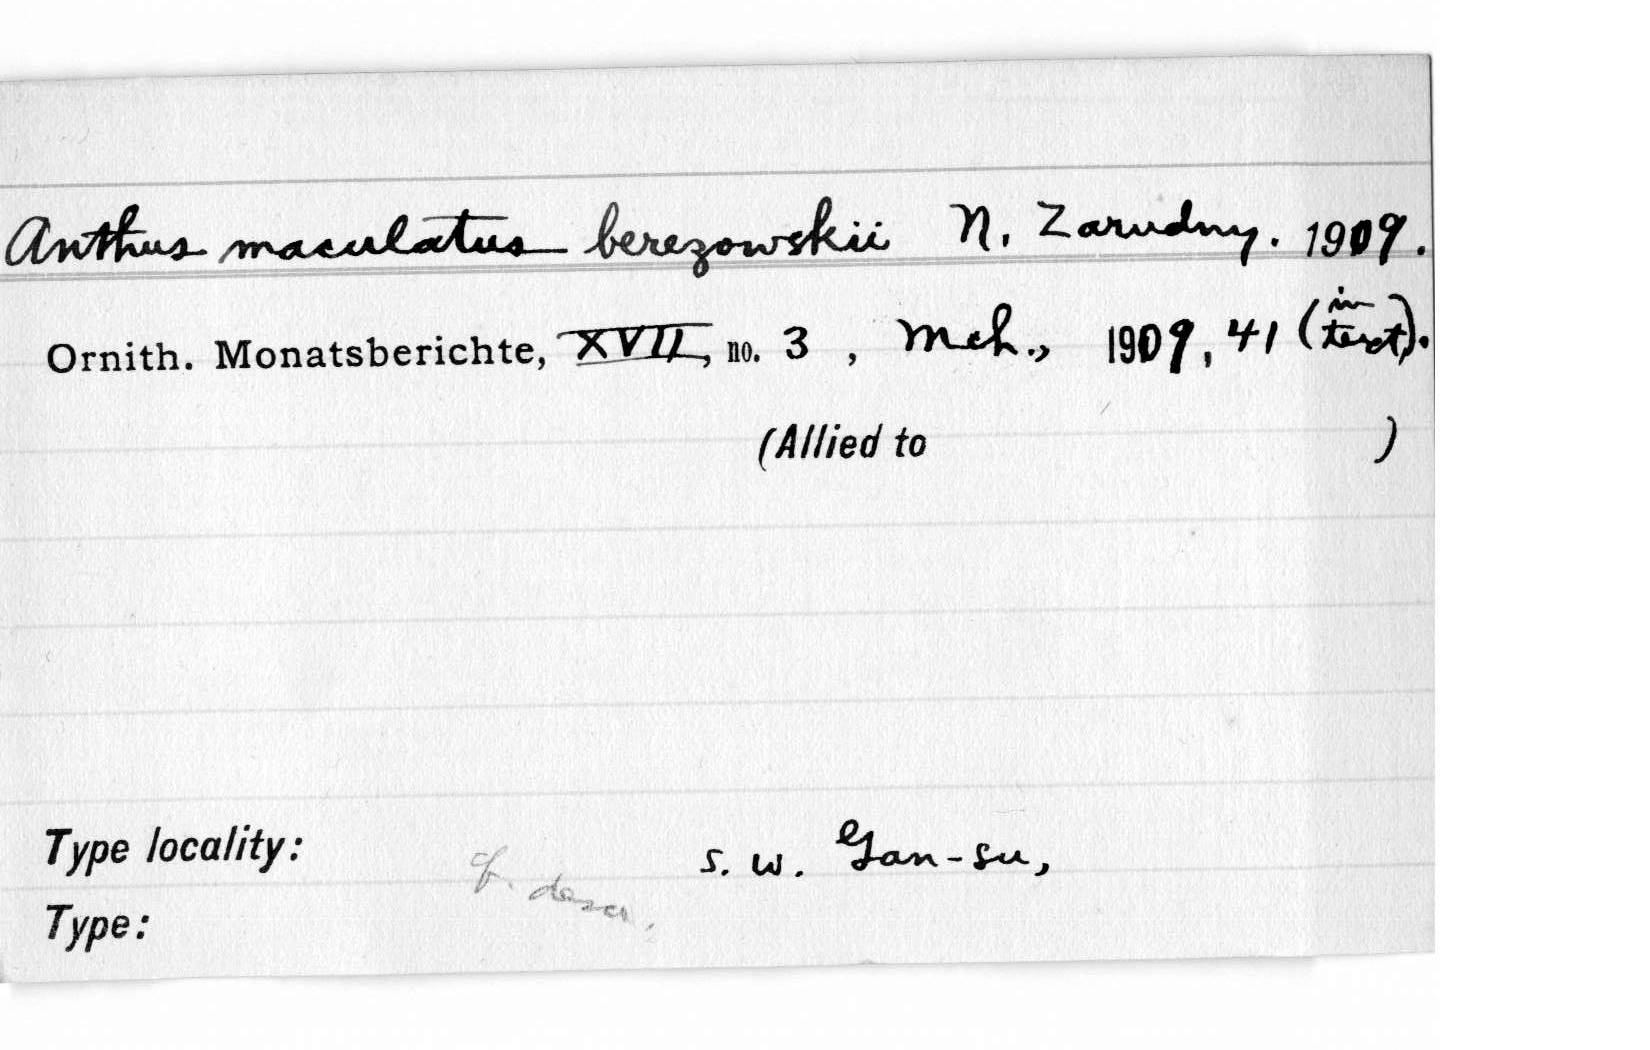 Anthus maculatus berezowskii N. Zarudny. 1909.
Ornith. Monatsberichte, XVII, no. 3, Mch., 1909, 41 (in text).
(Allied to )
Type locality: S. W. Gan-su,
cf. descr.
Type: